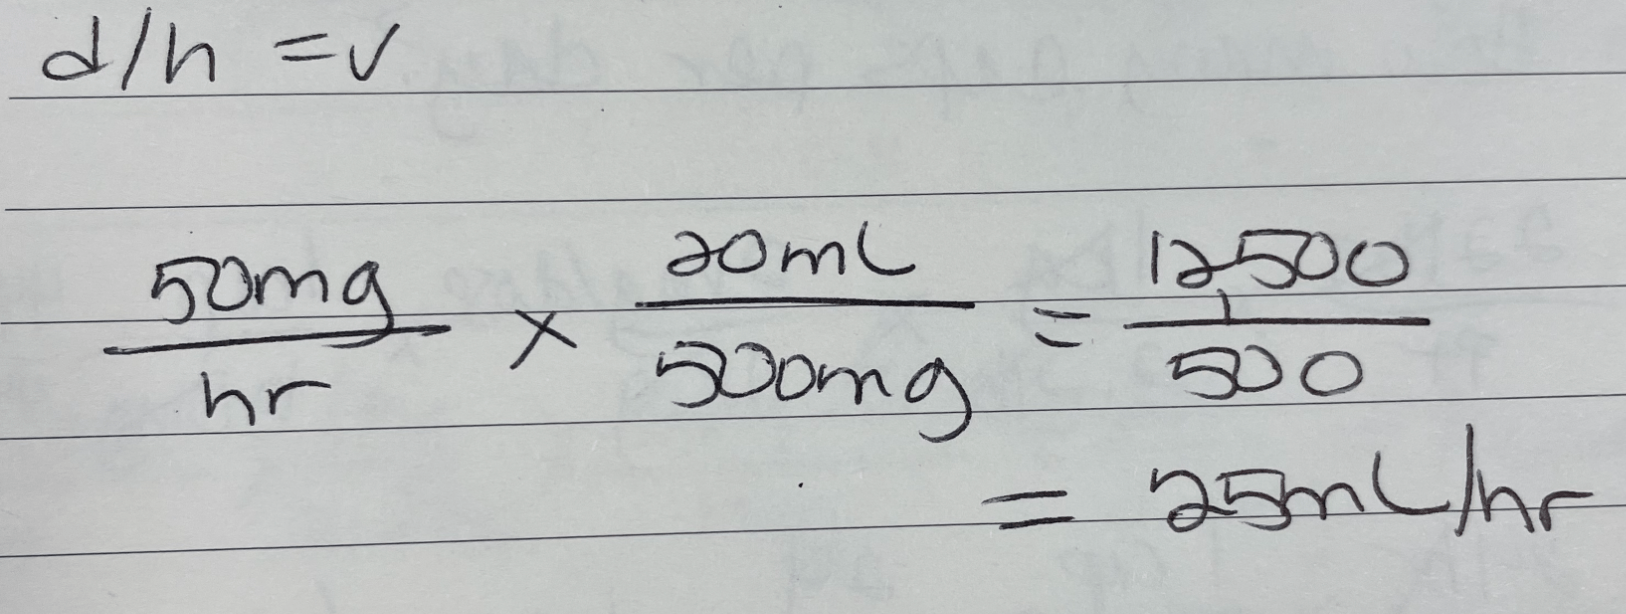 d/h = v
50mg/hr × 20mL/500mg = 12,500/500
= 25mL/hr